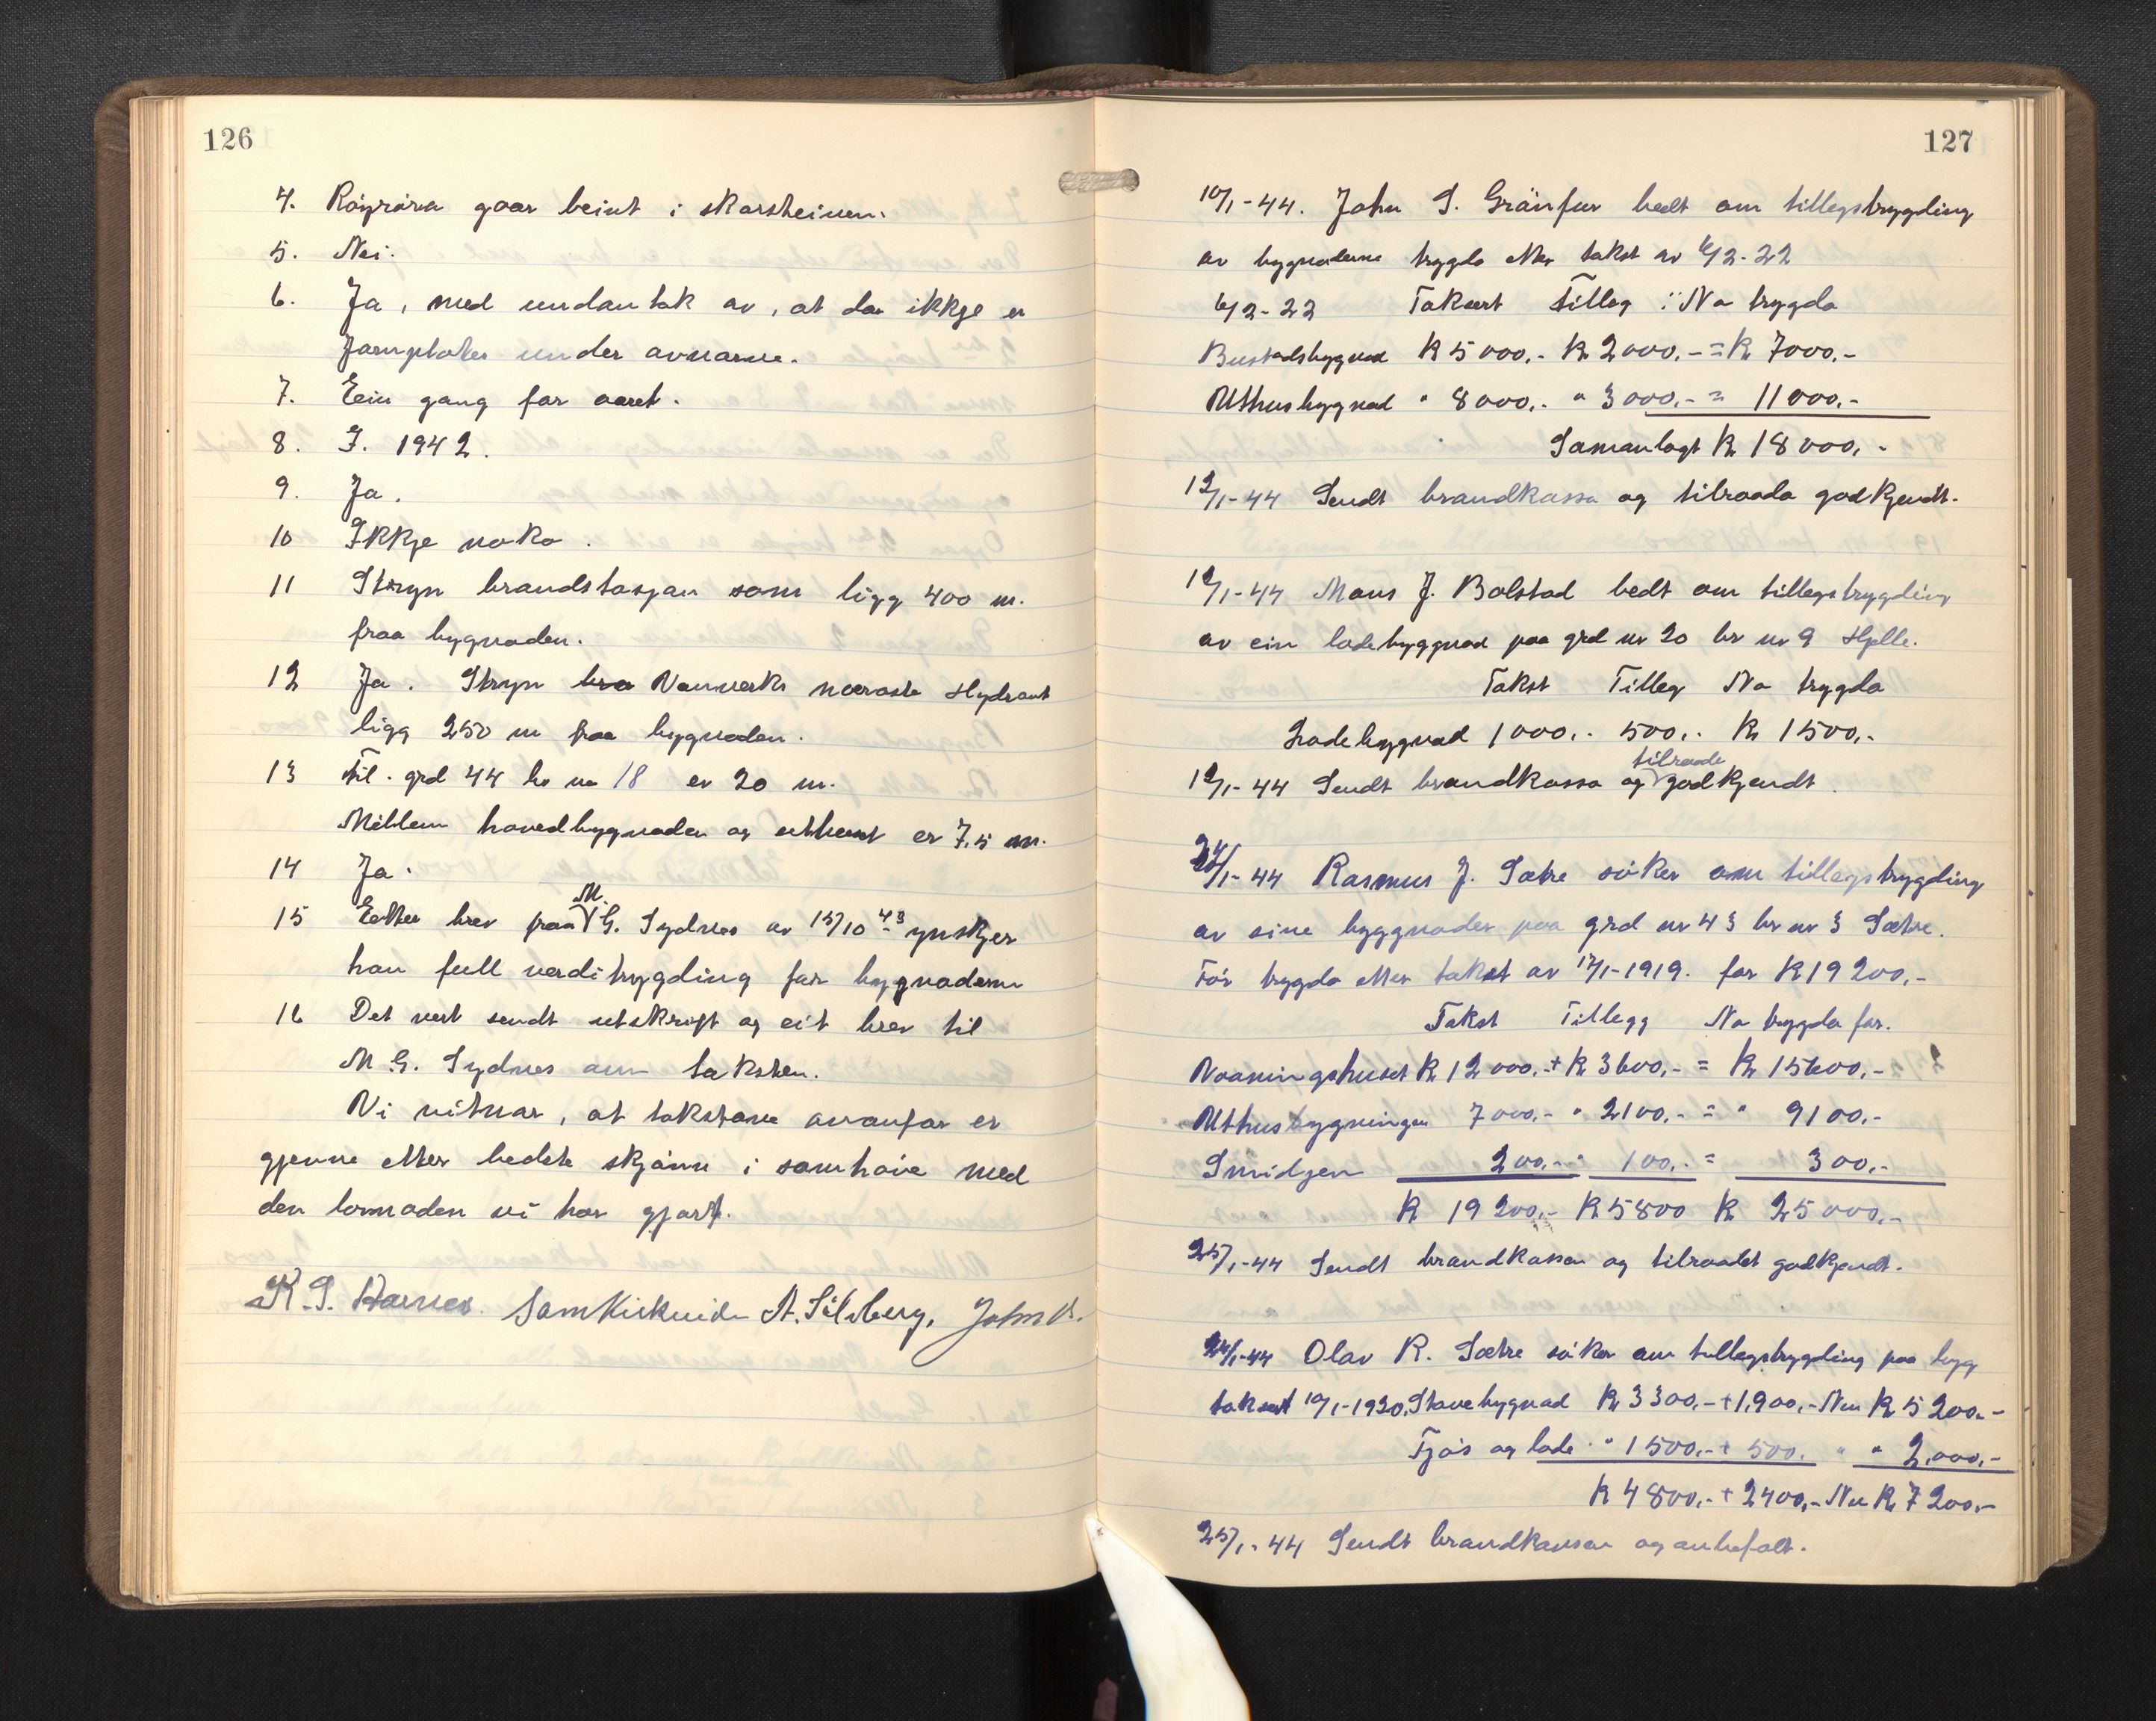 126
4. Røyrøra gaar beint i skorsteinen.
5. Nei.
6. Ja, med undantak av, at da ikkje er
Jarnplater under avnarne.
7. Ein gang for aaret.
8. I. 1942.
9. Ja.
10 Ikkje noko.
11 Stryn brandstasjon som ligg 400 m.
fraa bygnaden.
12 Ja. Stryn Vannverks næraste Hydrant
ligg 250 m fraa bygnaden.
13 Til. grd 44 br nr 18 er 20 m.
Mellem hovedbygnaden og uthuset er 7,5 m.
14 Ja.
15 Etter brev fraa M. G. Sydnes av 15/10-43 ynskjer
han full verditrygding for bygnaderne
16 Det vert sendt utskrift og eit brev til
M. G. Sydnes om taksten.
Vi vitnar, at takstane ovanfor er
gjevne etter bedste skjønn i samhøve med
den lovnaden vi har gjort.
K. S. Hornes. Sam Kirkeide A. Silsberg, John
127
10/1-44. John S. Grånfur bedt om tillegstrygding
av bygnaderne trygda etter takst av 6/12-22
6/12-22 Taksert Tilleg : No trygda
Bustadsbygnad K 5000,- K 2000,- = K 7000,-
Uthusbygnad " 8000,- " 3000,- = 11000,-
Samanlagt K 18000,-
12/1-44 Sendt brandkassa og tilraada godkjendt.
12/1-44 Mons J. Bolstad bedt om tillegstrygding
av ein ladebyggnad paa grd nr 20 br nr 9 Hjelle.
Takst Tilleg No trygda
Ladebygnad 1000,- 500,- K 1500,-
12/1-44 Sendt brandkassa og tilraade godkjendt.
24/1-44 Rasmus J. Sætre søker om tillegstrygding
av sine byggnader paa grd nr 43 br nr 3 Sætre.
Før trygda etter takst av 17/1-1919. for K 19200,-
Takst Tillegg No trygda for.
Vaaningshuset K 12000,- + K 3600,- = K 15600,-
Uthusbygningen 7000,- " 2100,- = " 9100,-
Smidjen 200,- " 100,- = 300,-
K 19200,- K 5800 K 25000,-
25/1-44 Sendt brandkassen og tilraadet godkjendt.
24/1-44 Olav R. Sætre søker om tillegstrygding paa bygg
taksert 10/1-1920. Stovebygnad K 3300,- + 1,900,- Nu K 5200,-
Fjøs og lade " 1500,- + 500. " " 2,000,-
K 4800,- + 2400,- Nu K 7200,-
25/1-44 Sendt brandkassen og anbefalt.